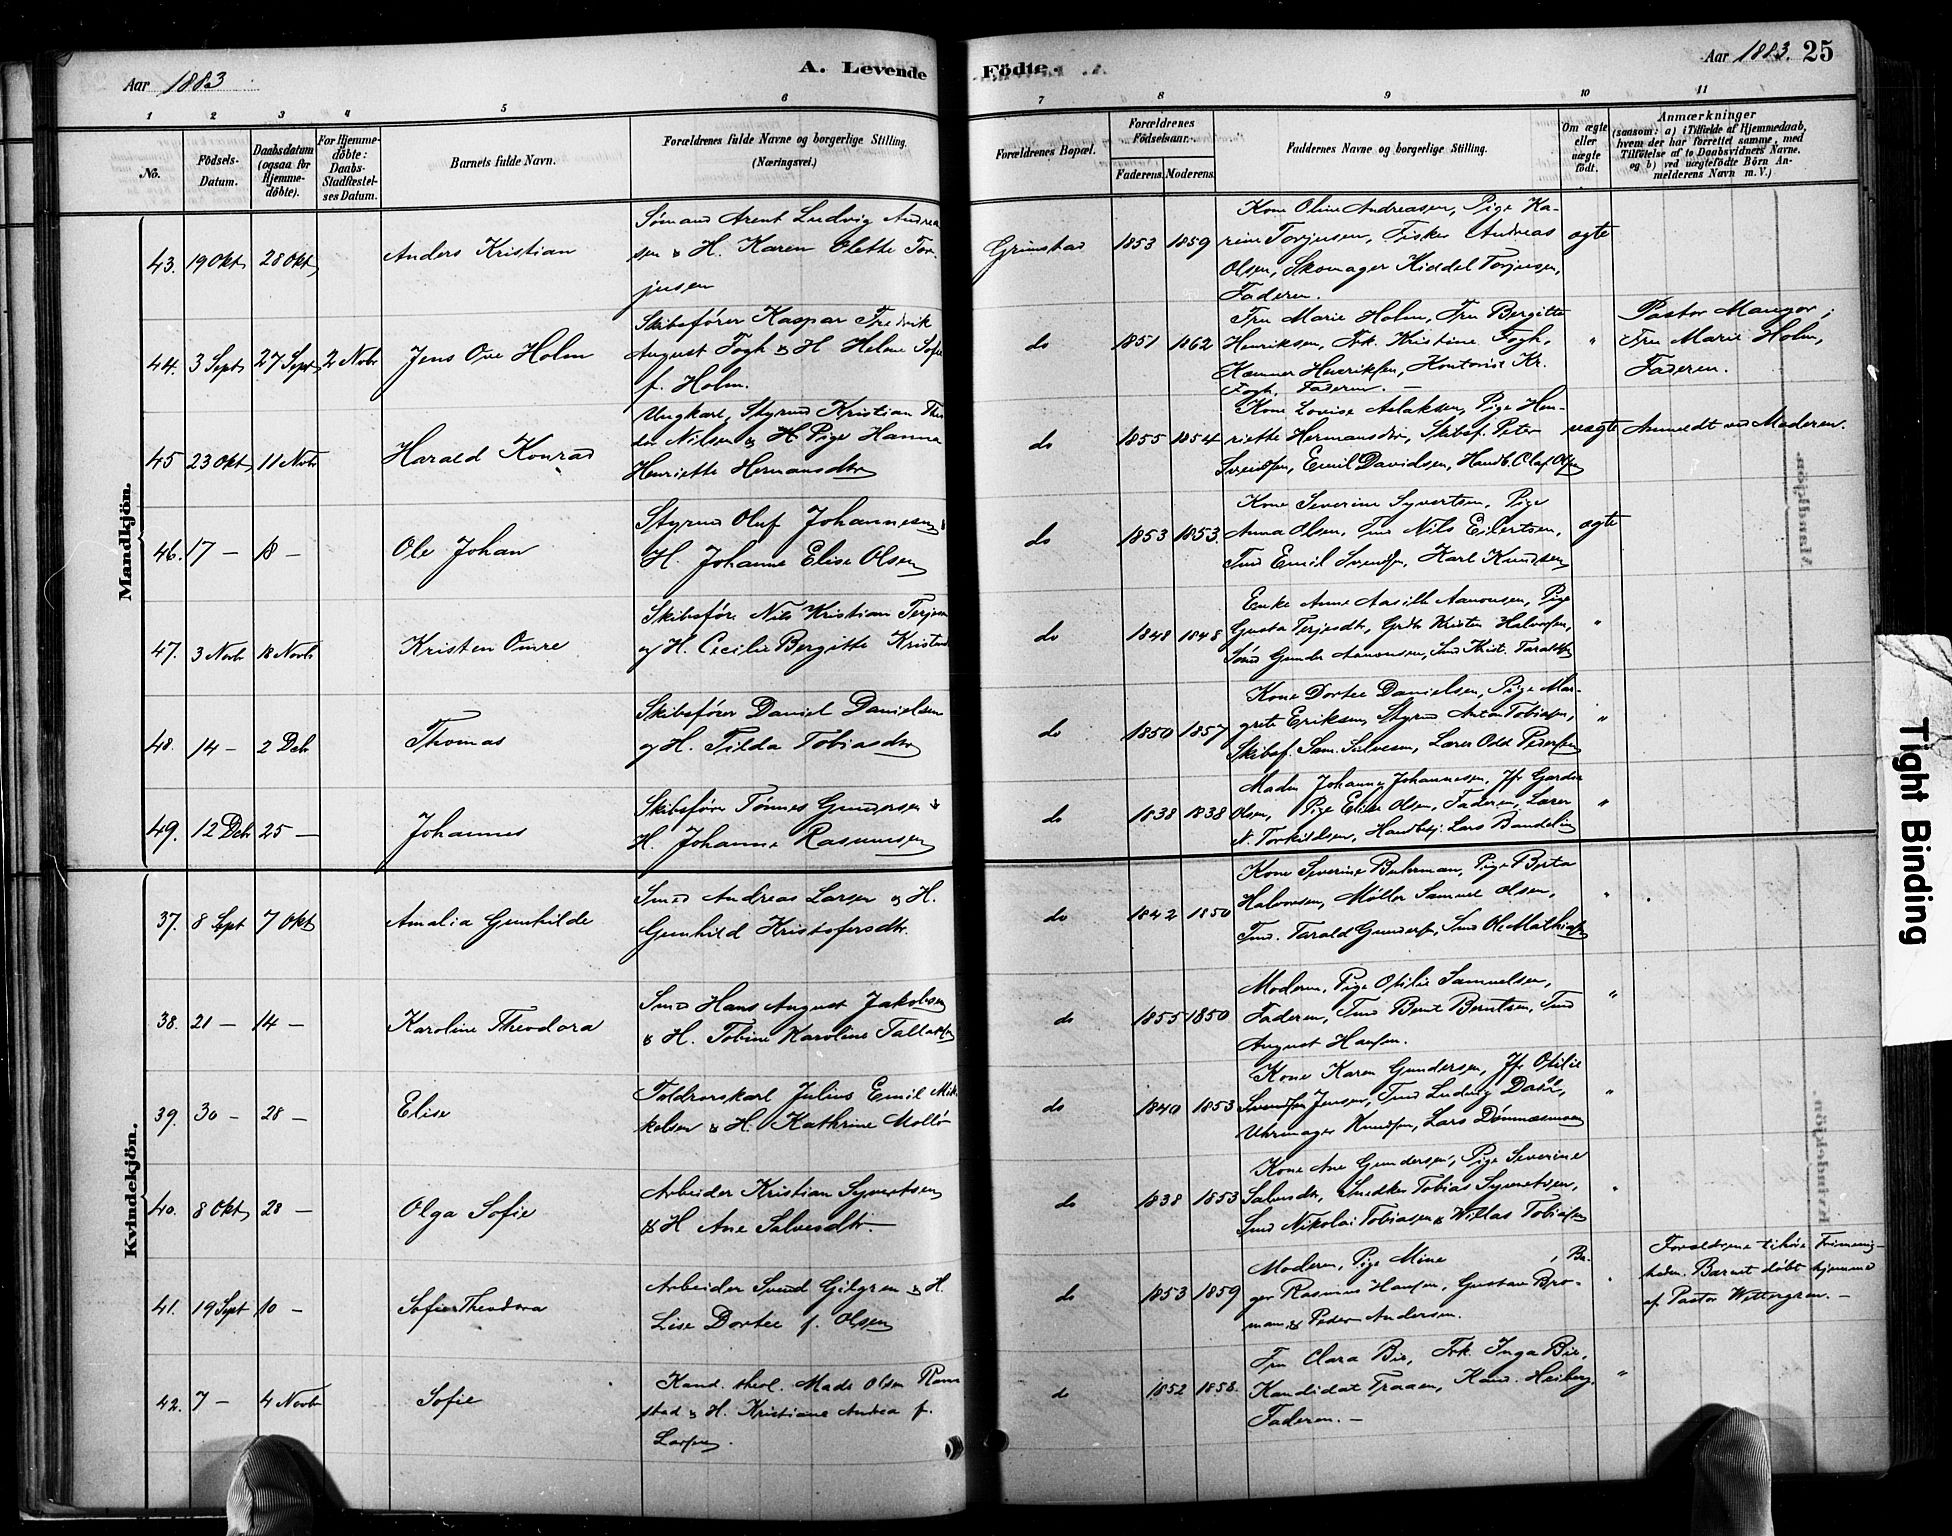 Aar 1883
A. Levende
Fødte.
Aar 1883. 25
1 2 3 4 5 6 7 8 9 10 11
No.
Födsels-Datum.
Daabsdatum (ogsaa for Hjemmedöbte).
For Hjemmedöbte: Daabs-Stadfæstelses Datum.
Barnets fulde Navn.
Forældrenes fulde Navne og borgerlige Stilling. (Næringsvei.)
Forældrenes Bopæl.
Forældrenes Födselsaar.
Faderens. Moderens.
Faddernes Navne og borgerlige Stilling.
Om ægte eller uægte födt.
Anmærkninger
(saasom: a) i Tilfælde af Hjemmedaab, hvem der har forrettet samme, med Tilføielse af to Daabsvidners Navne, og b) ved uægtefödte Börn Anmelderens Navn m. V.)
Mandkjön.
43. 19 Okt 28 Okt Anders Kristian
Sømand Arent Ludvig Andrea
sen & H. Karen Olette Tor
jusen
Grimstad 1853 1859
Kone Oline Andreasen, Pige Ka-
rine Torjusen, Fisker Andreas
Olsen, Skomager Kiddel Torjusen,
Faderen.
ægte
44. 3 Sept 27 Sept 2 Novb Jens Ove Holm
Skibsfører Kaspar Fredrik
August Fogh & H. Helene Sofie
f. Holm.
do 1851 1862
Fru Marie Holm, Fru Bergitte
Henriksen, Frk. Kristine Fogh,
Kæmner Henriksen, Kontorist Kr.
Fogh, Faderen. —
"
Pastor Mangor;
Fru Marie Holm,
Faderen.
45 23 Okt 11 Novb Harald Konrad
Ungkarl, Styrmd Kristian Theo
dor Nilsen & Pige Hanna
Henriette Hermansdtr
do 1855 1854
Kone Lovise Aslaksen, Pige Hen-
riette Hermansdtr, Skibsf. Peter
Svendsen, Emil Davidsen, Handb. Olaf Olsen
uægte
Anmeldt ved Moderen.
46. 17 — 18 — Ole Johan
Styrmd Oluf Johannesen &
H. Johanne Elise Olsen
do 1853 1853.
Kone Severine Syvertsen, Pige
Anna Olsen, Tmd Nils Eilertsen,
Tmd Emil Svendsen, Karl Knudsen
ægte
47. 3 Novb 18 Novb Kristen Omre
Skibsfør. Nils Kristian Terjesen
og H. Cecilie Bergitte
do 1848 1848
Enke Anne Aasille Aanonsen, Pige
Gusta Terjesdtr, Kristen Halvorsen,
Sømd Gunder Aanonsen,
"
48. 14 — 2 Deb Thomas
Skibsfører Daniel Danielsen
og H. Tilda Tobiasdtr
do 1850 1857
Kone Dortee Danielsen, Pige Mar-
grete Eriksen, Styrmd Anton Tobiasen,
Skibsf. Sam. Salvesen, Lærer Odd Pedersen
"
49. 12 Deb 25 — Johannes
Skibsfører Tønnes Gundersen &
H. Johanne Rasmusen
do 1838 1838
Madm Johanne Johannesen, Jfr
Olsen, Pige Elise Olsen, Faderen, Lærer
N. Torkildsen, Lars
"
Kvindekjön.
37. 8 Sept 7 Okt Amalia Gunhilde
Smed Andreas Larsen & H.
Gunhild Kristofersdtr.
do 1842 1850
Kone Severine Buhrman, Pige Berta
Halvorsen, Møller Samuel Olsen,
Tmd. Tarald Gunders., Smd Ole Mathias
"
38. 21 — 14 — Karoline Theodora
Smed Hans August Jakobsen
& H. Tobine Karoline Tallaksen
do 1855 1850
Moderen, Pige Otilie Samuelsen,
Faderen, Tmd Bernt Berntsen, Tmd
August Hansen.
"
39. 30 — 28 — Elise
Toldrorskarl Julius Emil Mik
kelsen & H. Kathrine
do 1840 1853
Kone Karen Gundersen, Jfr Otilie
Jensen, Tmd Ludvig
Uhrmager Knudsen, Lars
"
40. 8 Okt 28 — Olga Sofie
Arbeider Kristian Syvertsen
& H Ane Salvesdtr —
do 1838 1853
Kone Ane Gundersen, Pige Severine
Salvesdtr, Snedker Tobias Syvertsen,
Smd Nikolai Tobiasen & Willas Tobiasen
"
41. 19 Sept 10 — Sofie Theodora
Arbeider Svend Gilgren & H.
Lise Dortee f. Olsen
do 1853 1859
Moderen, Pige Mine , Ba-
ger Rasmus Hansen, Gustav Bro-
man, & Peder Andersen.
"
Forældrene tilhøre Frimenig-
heden. Barnet døbt hjemme
af Pastor Wettergren. —
42. 7 — 4 Novbr Sofie
Kand. theol. Mads Olsen Ram
stad & H. Kristiane Andrea f.
Larsen.
do 1852 1858.
Fru Clara Bie, Frk. Inga Bie,
Kandidat Traaen, Kand. Heiberg,
Faderen. —
"
Tight Binding